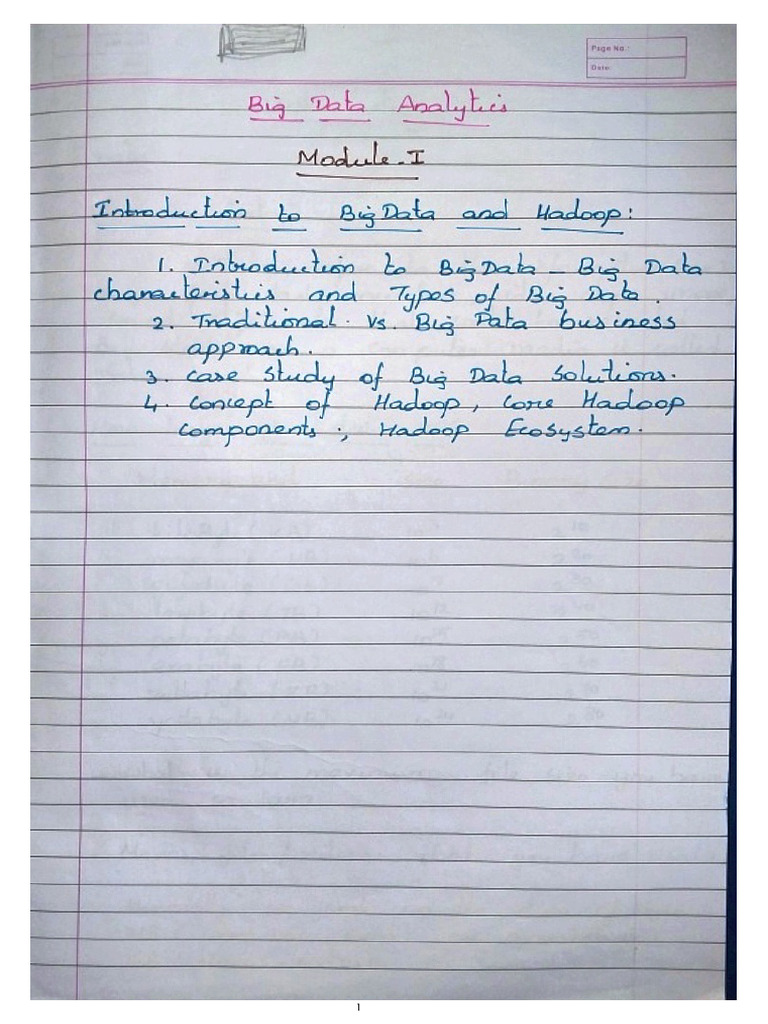 Page No.:
Date:
Big Data Analytics
Module-I
Introduction to Big Data and Hadoop:
1. Introduction to Big Data - Big Data
characteristics and Types of Big Data.
2. Traditional vs. Big Data business
approach.
3. case study of Big Data Solutions.
4. concept of Hadoop, core Hadoop
components;, Hadoop Ecosystem.
1